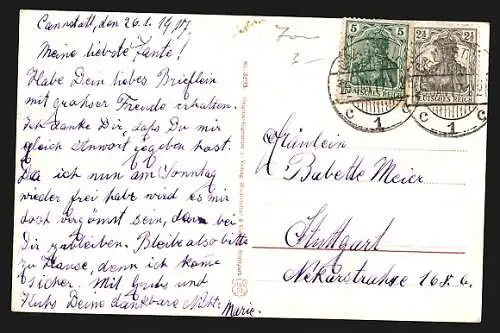 Cannstatt, den 26.1.1917.
Meine liebste Tante!
Habe Dein liebes Brieflein
mit grosser Freude erhalten.
Ich danke Dir, daß Du mir
gleich Antwort gegeben hast.
Da ich nun am Sonntag
wieder frei habe wird es mir
doch vergönnt sein, dann bei
Dir zu bleiben. Bleibe also bitte
zu Hause, denn ich kome
sicher. Mit Gruß und
Kuss Deine dankbare Nichte
Marie.
5 5
DEUTSCHES REICH
2½ 2½
DEUTSCHES REICH
C 1 C
C 1 C
Fräulein
Babette Meier
Stuttgart
Nekarstrasse 168.